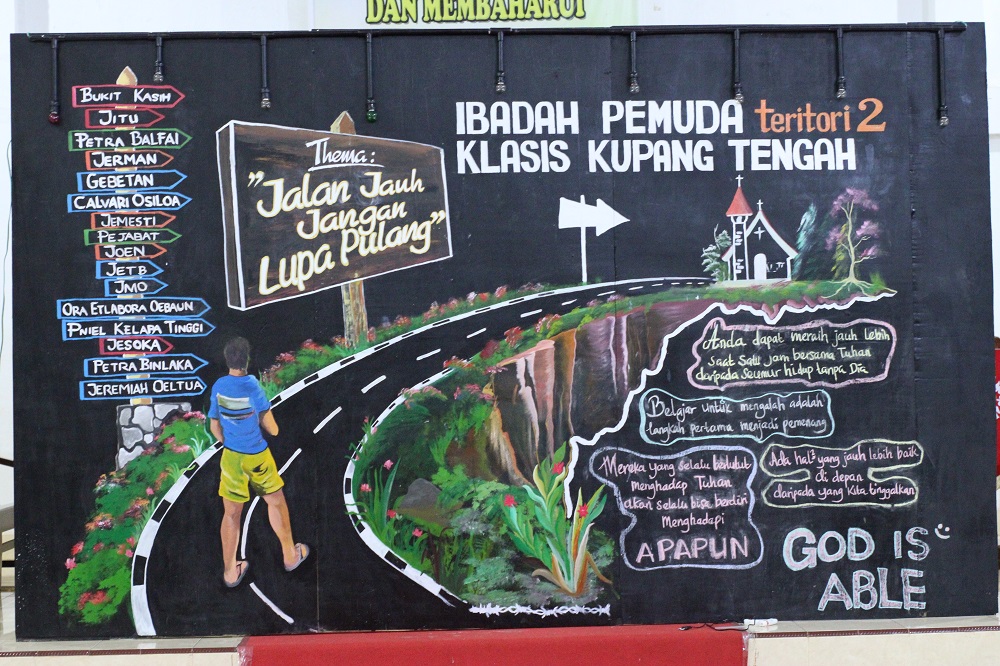 DAN MEMBAHARUI
BUKIT KASIH
JITU
PETRA BALFAI
JERMAN
GEBETAN
CALVARI OSILOA
JEMESTI
PEJABAT
JOEN
JETB
JMO
ORA ETLABORA OEBAUN
PNIEL KELAPA TINGGI
JESOKA
PETRA BINLAKA
JEREMIAH OELTUA
Thema:
"Jalan Jauh
Jangan
Lupa Pulang"
IBADAH PEMUDA teritori 2
KLASIS KUPANG TENGAH
Anda dapat meraih jauh lebih
saat satu jam bersama Tuhan
daripada seumur hidup tanpa Dia
Belajar untuk mengalah adalah
langkah pertama menjadi pemenang
Mereka yang selalu berlutut
menghadap Tuhan
akan selalu bisa berdiri
Menghadapi
APAPUN
Ada hal² yang jauh lebih baik
di depan
daripada yang kita tinggalkan
GOD IS
ABLE